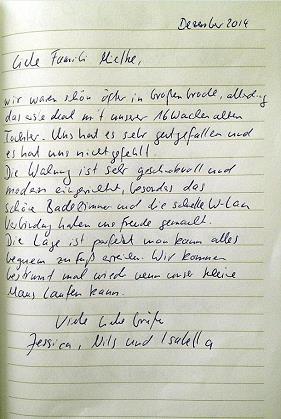 Dezember 2014
Liebe Familie Methe,
wir waren schon öfter in Großenbrode, allerdings
das erste Mal mit unserer 16 Wochen alten
Tochter. Uns hat es sehr gut gefallen und
es hat uns nicht gefehlt.
Die Wohnung ist sehr geschmackvoll und
modern eingerichtet, besonders das
schöne Badezimmer und die schnelle W-Lan
Verbindung haben uns Freude gemacht.
Die Lage ist perfekt man kann alles
bequem zu Fuß erreichen. Wir kommen
bestimmt mal wieder wenn unser kleine
Maus Laufen kann.
Viele liebe Grüße
Jessica, Nils und Isabella